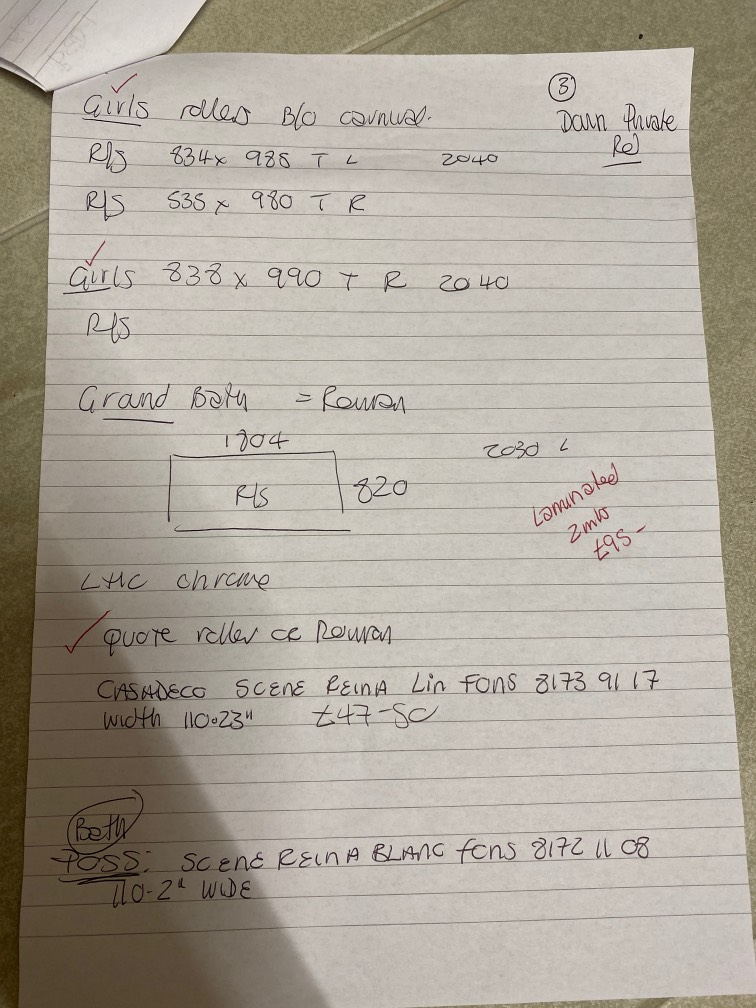 ③
Girls rollers B/O carnival.
Private
R/S 834 x 985 T L 2040
R/S 535 x 980 T R
Girls 838 x 990 T R 2040
R/S
Grand Bath = Rowan
1804
2030 L
R/S 820
Laminated
2mts
£95-
LHC chrome
quote roller Rowan
CASADECO SCENE REINA Lin FONS 8173 91 17
width 110.23" £47-50
Beth
POSS: SCENE REINA BLANC fons 8172 11 08
110-2" WIDE